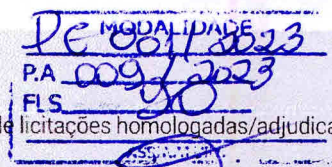 MODALIDADE
PE 001/2023
P.A 009/2023
FLS 90
de licitações homologadas/adjudica